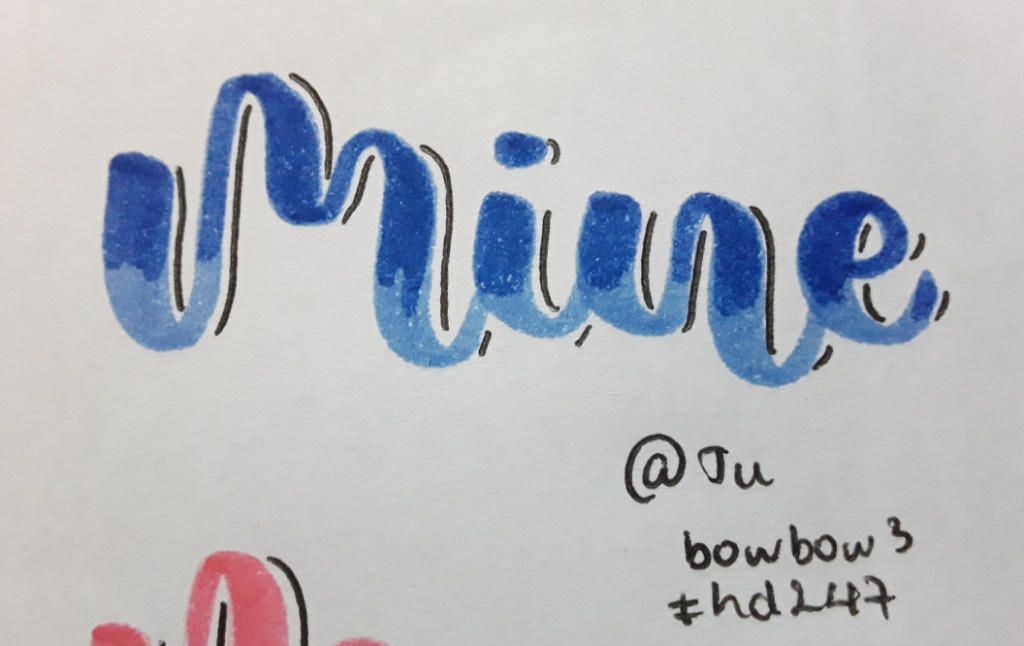 Mine
@Ju
bowbow3
#hd247